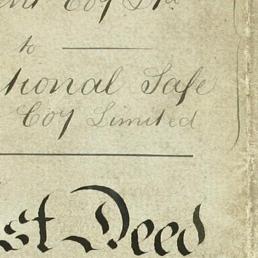 Coy Ltd
to
tional Safe
Coy Limited
st Deed